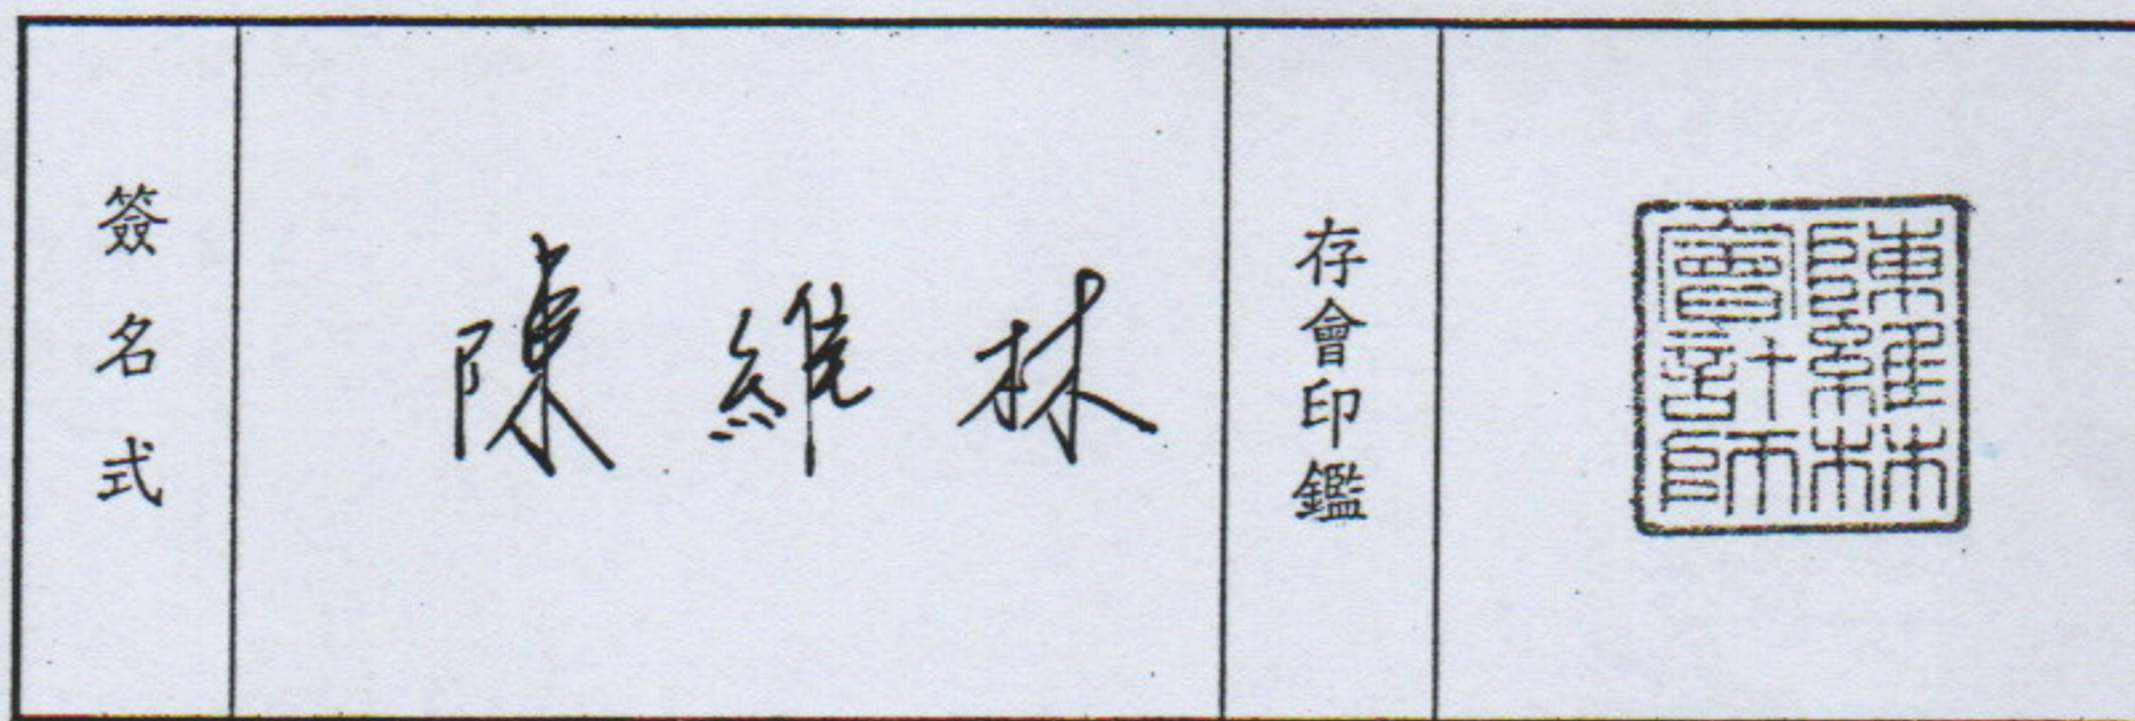 簽名式
陳維林
存會印鑑
陳維林
會計師